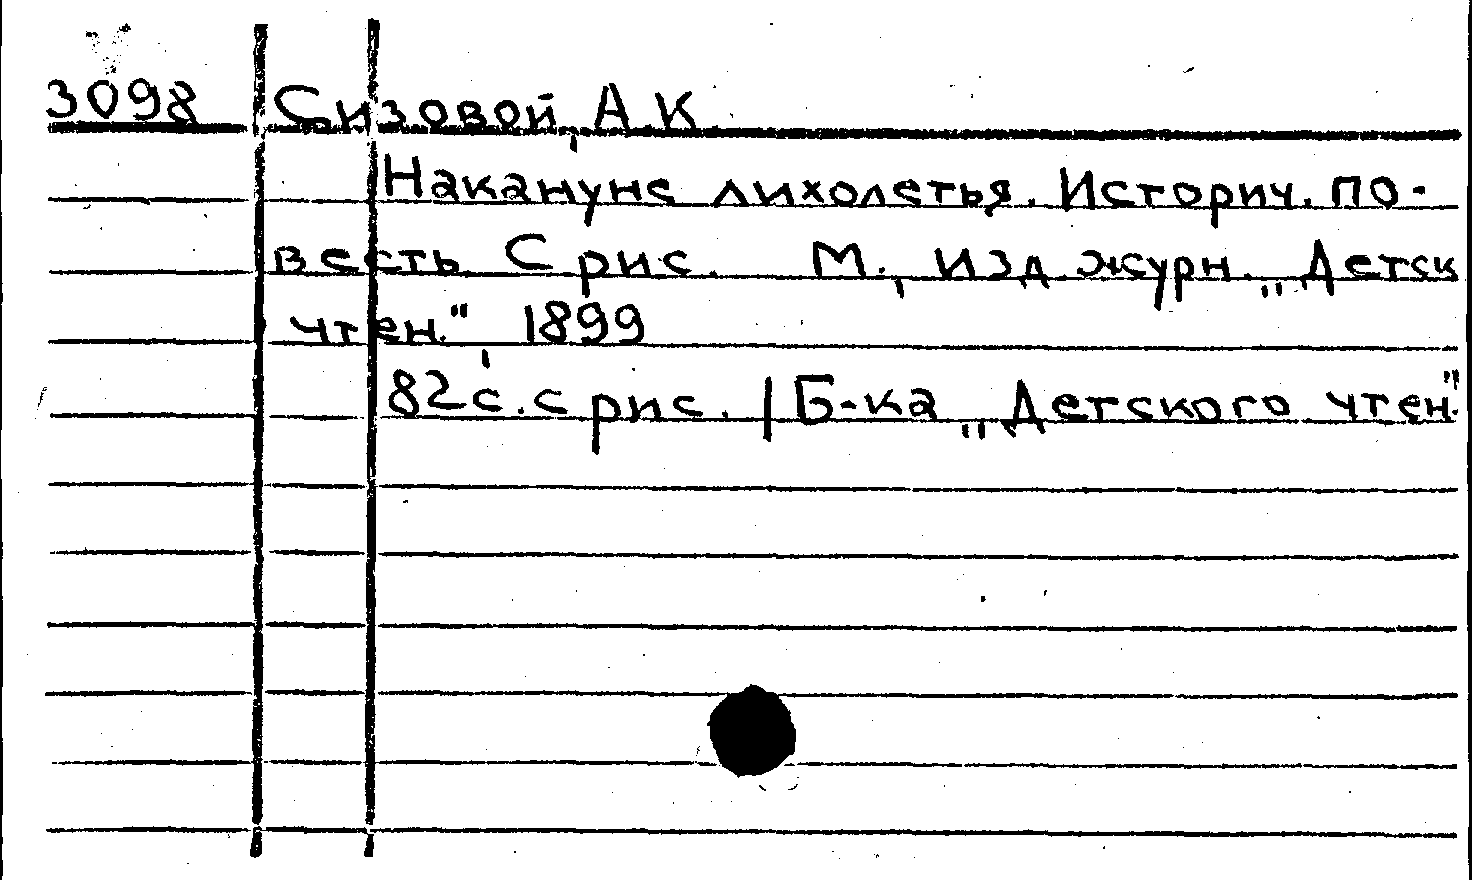 3098 Сизовой, А К.
Накануне лихолетья. Историч. по-
весть. С рис. М., Изд журн. „Детск
чтен.", 1899
82 с. с рис. | Б-ка „Детского чтен."